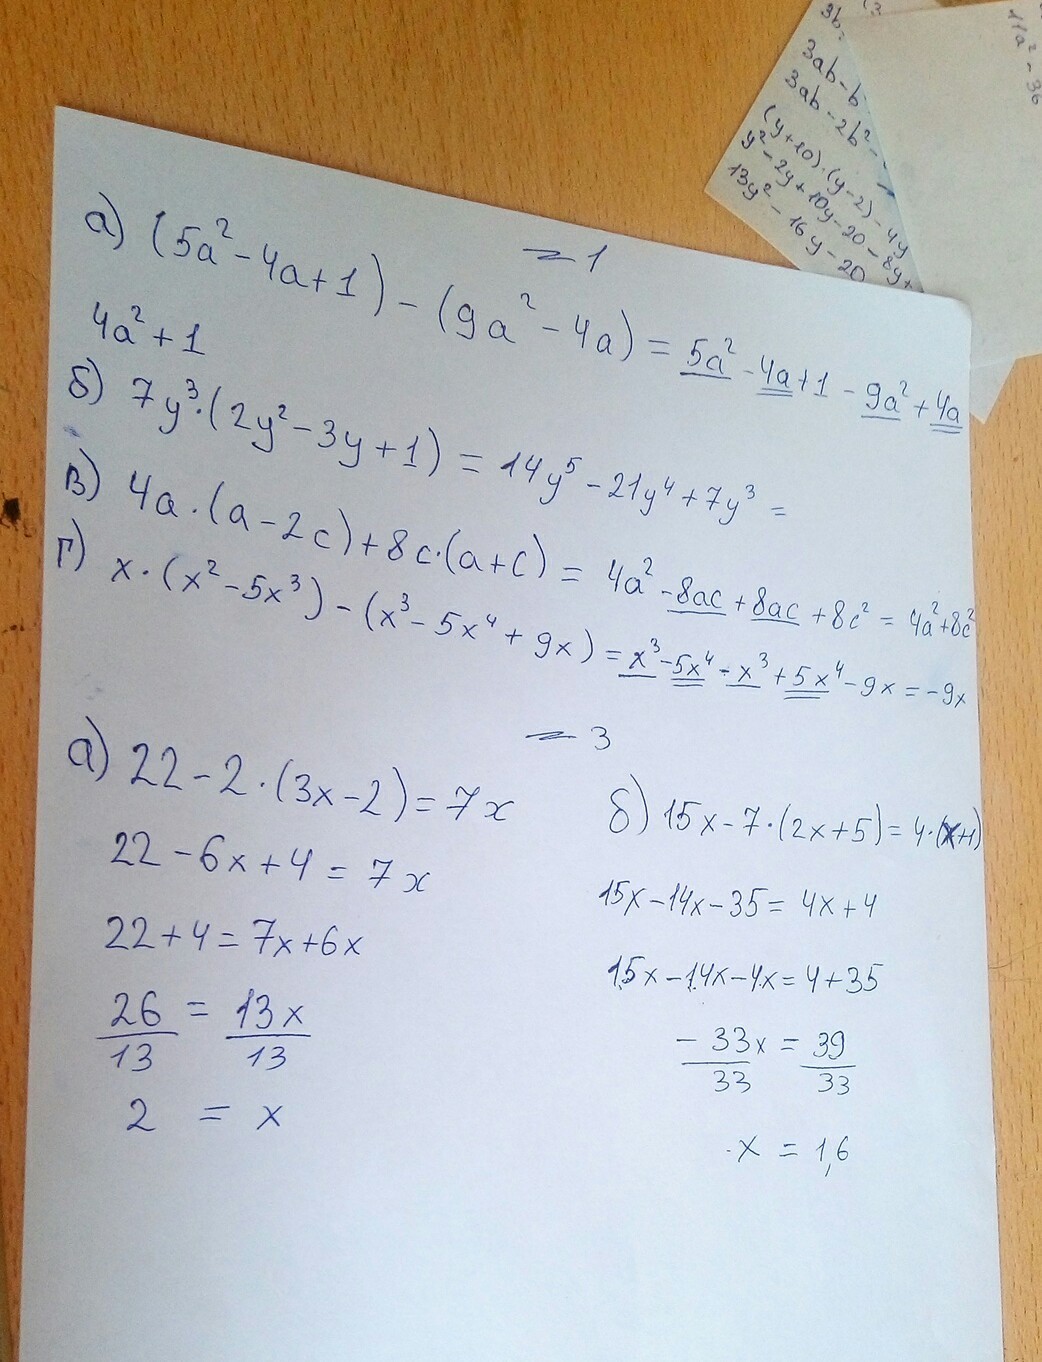 3ab-b
3ab-2b²-
(y+10)·(y-2)-4y
y²-2y+10y-20-8y+
13y²-16y-20
11a²-3b
1
а) (5a²-4a+1)-(9a²-4a)=5a²-4a+1-9a²+4a
4a²+1
б) 7y³·(2y²-3y+1)=14y⁵-21y⁴+7y³=
в) 4a·(a-2c)+8c·(a+c)=4a²-8ac+8ac+8c²=4a²+8c²
г) x·(x²-5x³)-(x³-5x⁴+9x)=x³-5x⁴-x³+5x⁴-9x=-9x
3
а) 22-2·(3x-2)=7x
22-6x+4=7x
22+4=7x+6x
26/13=13x/13
2=x
б) 15x-7·(2x+5)=4·(x+1)
15x-14x-35=4x+4
15x-14x-4x=4+35
-33x/33=39/33
·x=1,6